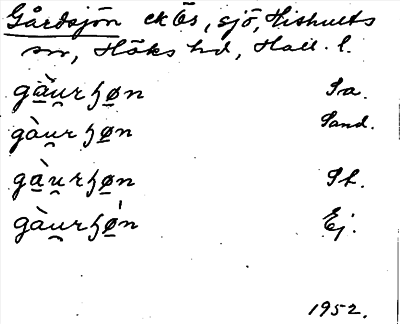 Gårdsjön ekÖs, sjö, Hishults
sn, Höks hd, Hall. l.
gàu̯rɧøn Sa.
gàu̯rɧøn Sand.
gàu̯rɧøn St.
gàu̯rɧøn Ej.
1952.